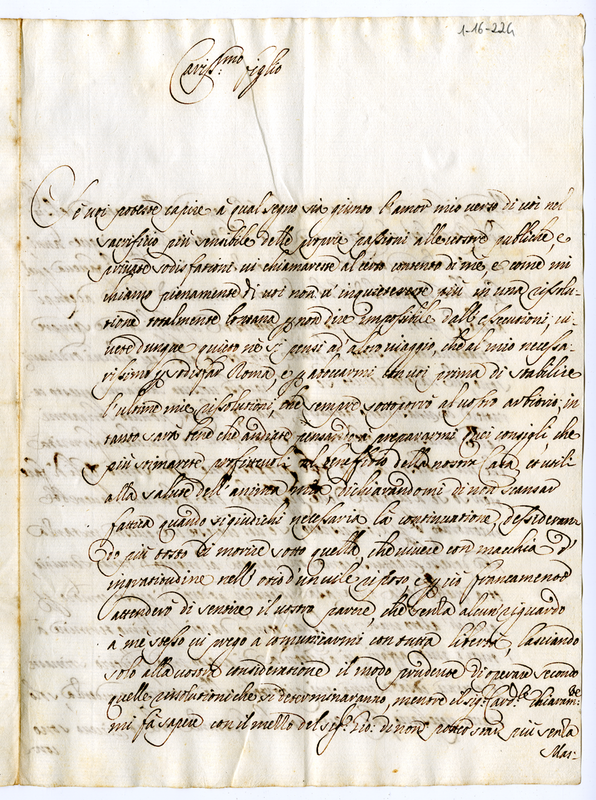 1-16-224
Cariss:mo figlio
Se voi poteste capire à qual segno sia giunto l'amor mio verso di voi nel
sacrifitio più sensibile delle proprie passioni alle vostre publiche, e
private sodisfationi vi chiamareste al certo contento di me, e come mi
chiamo pienamente di voi non v' inquietereste più in una risolu-
tione totalmente lontana p non dire impossibile dall' essecutioni, vi-
vete dunque quieto ne si pensi ad altro viaggio, che al mio necessa-
rissimo p sodisfar Roma, e p abboccarmi con voi prima di stabilire
l'ultime mie risolutioni, che sempre sottoporrò al vostro arbitrio; in
tanto sarà bene che andiate pensando a prepararmi quei consigli, che
più stimarete profittevoli al beneficio della nostra Casa, et utili
alla salute dell' anima mia, dichiarandomi di non scansar
fatica quando si giudichi necessaria la continuatione, dessideran-
do più tosto di morire sotto quella, che vivere con macchia d'
ingratitudine nell' otio d'un vile riposo e p ciò francamente
attenderò di sentire il vostro parere, che senza alcun riguardo
a me stesso vi prego a comunicarmi con tutta libertà, lasciando
solo alla vostra consideratione il modo prudente di operare secondo
quelle resolutioni che si determinaranno, mentre il sig:r Card:le Chiaram:te
mi fà sapere con il mezzo del sig:r Gio: di non poter star più senza
Mae-